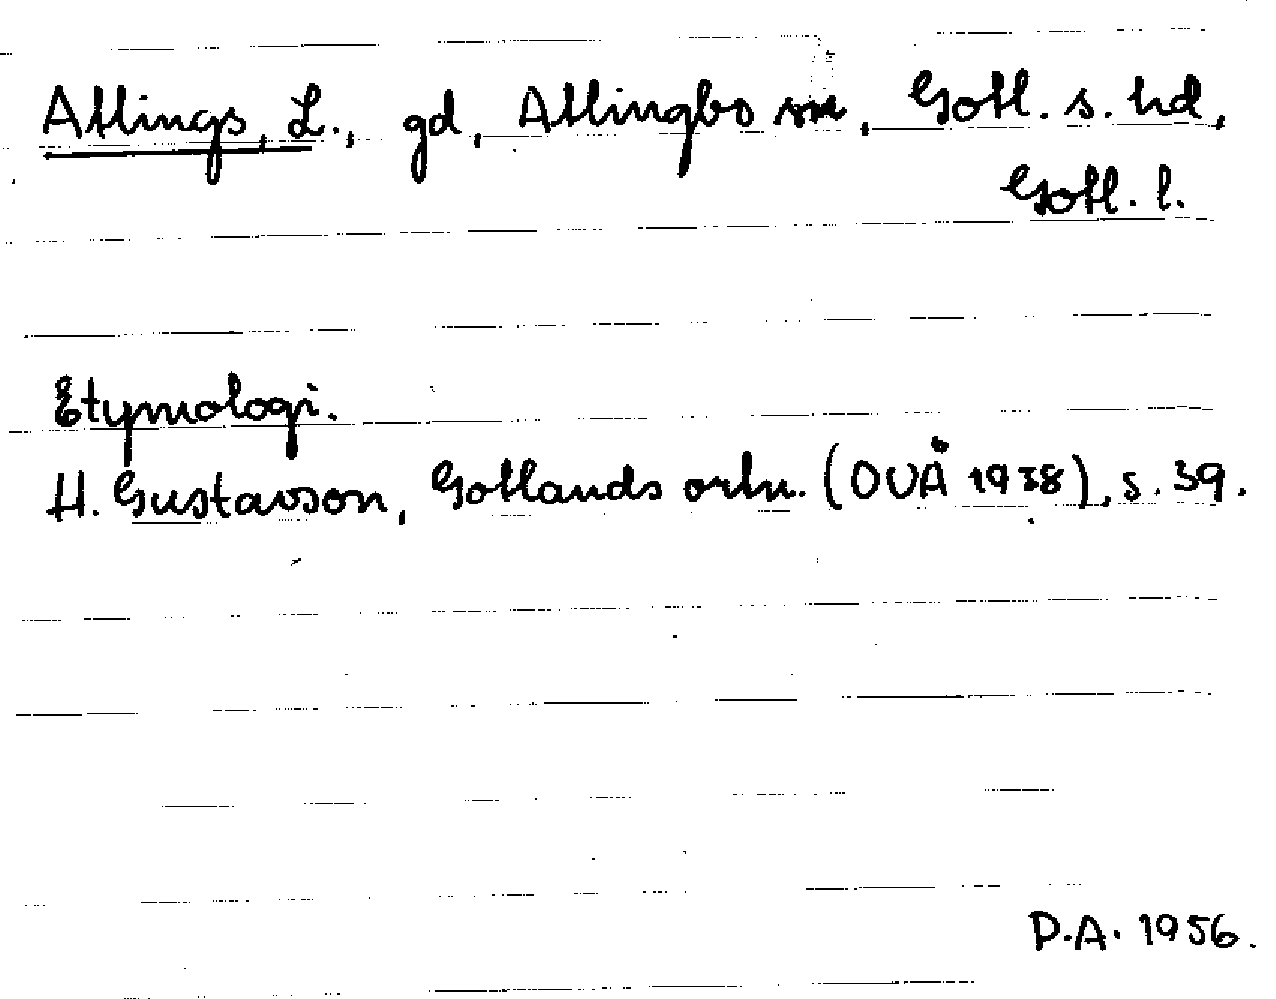 Atlings, L., gd, Atlingbo sn, Gotl. s. hd,
Gotl. l.
Etymologi.
H. Gustavson, Gotlands ortn. (OUÅ 1938), s. 39.
D.A. 1956.